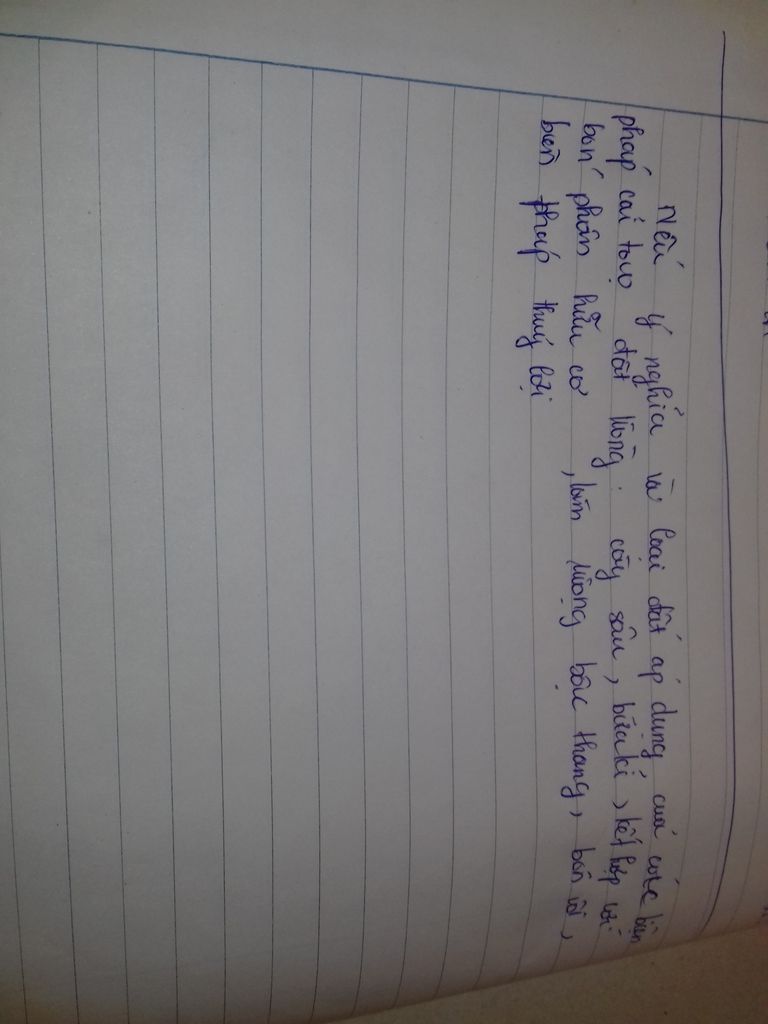 Nêu ý nghĩa và loại đất áp dụng của các biện
pháp cải tạo đất trồng: cày sâu, bừa kĩ, kết hợp với
bón phân hữu cơ, làm ruộng bậc thang, bón vôi,
biện pháp thuỷ lợi